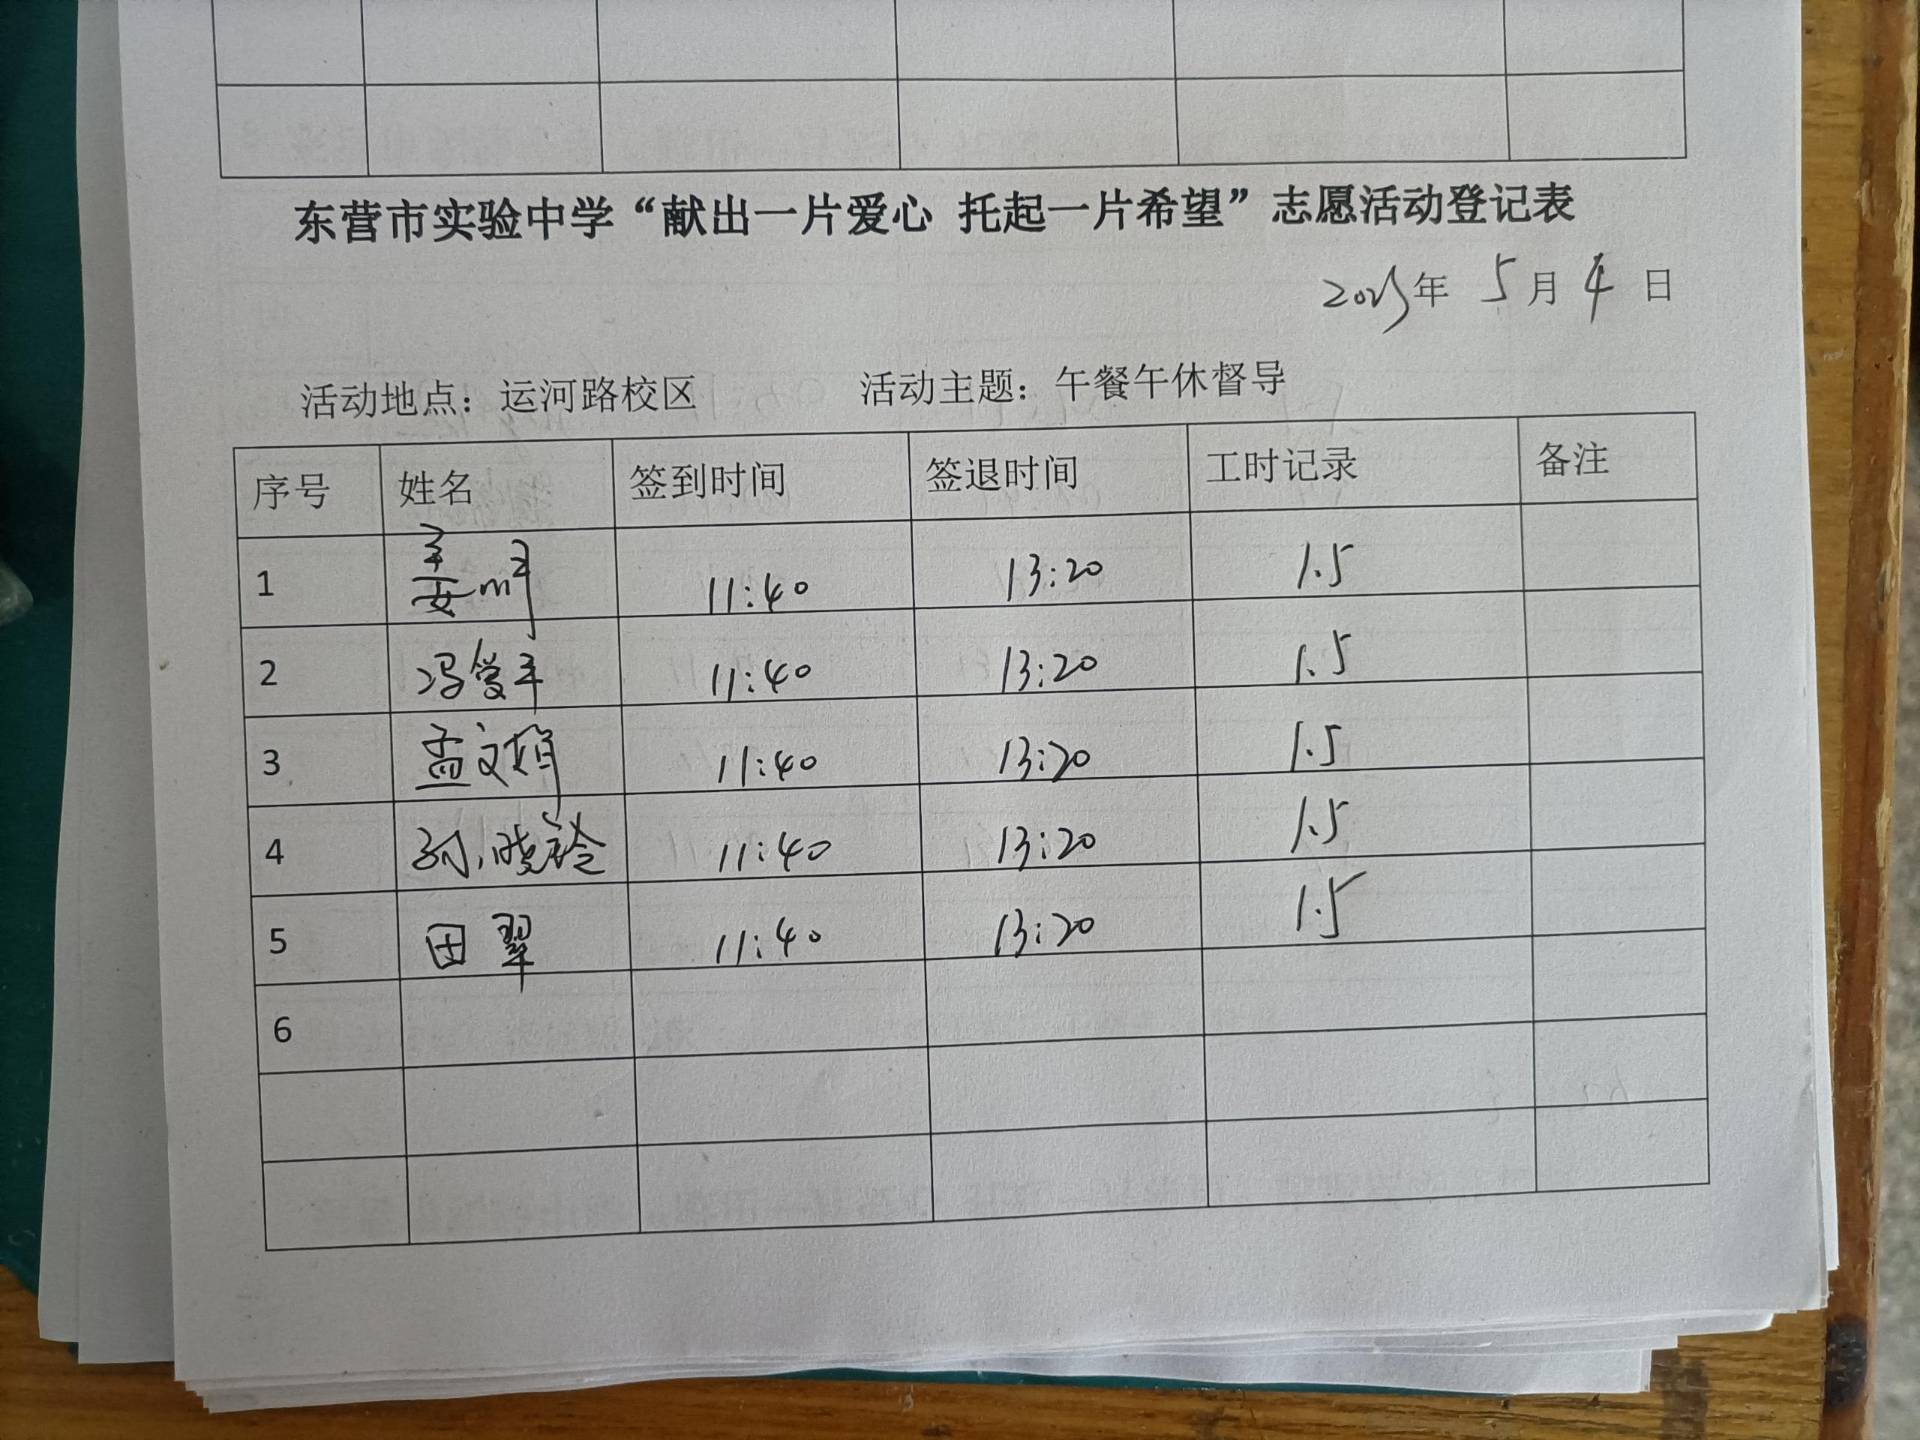 东营市实验中学“献出一片爱心 托起一片希望”志愿活动登记表
2023年 5月 4 日
活动地点：运河路校区 活动主题：午餐午休督导
序号 姓名 签到时间 签退时间 工时记录 备注
1 姜 11:40 13:20 1.5
2 冯爱平 11:40 13:20 1.5
3 孟文娟 11:40 13:20 1.5
4 孙晓玲 11:40 13:20 1.5
5 田翠 11:40 13:20 1.5
6